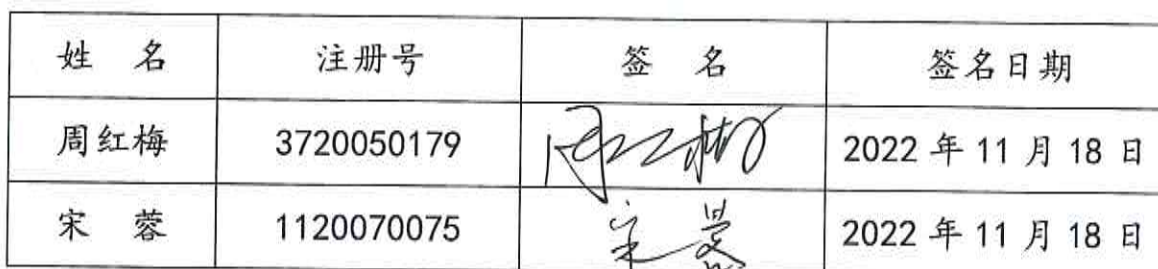 姓 名 注册号 签 名 签名日期
周红梅 3720050179 周红梅 2022 年 11 月 18 日
宋 蓉 1120070075 2022 年 11 月 18 日